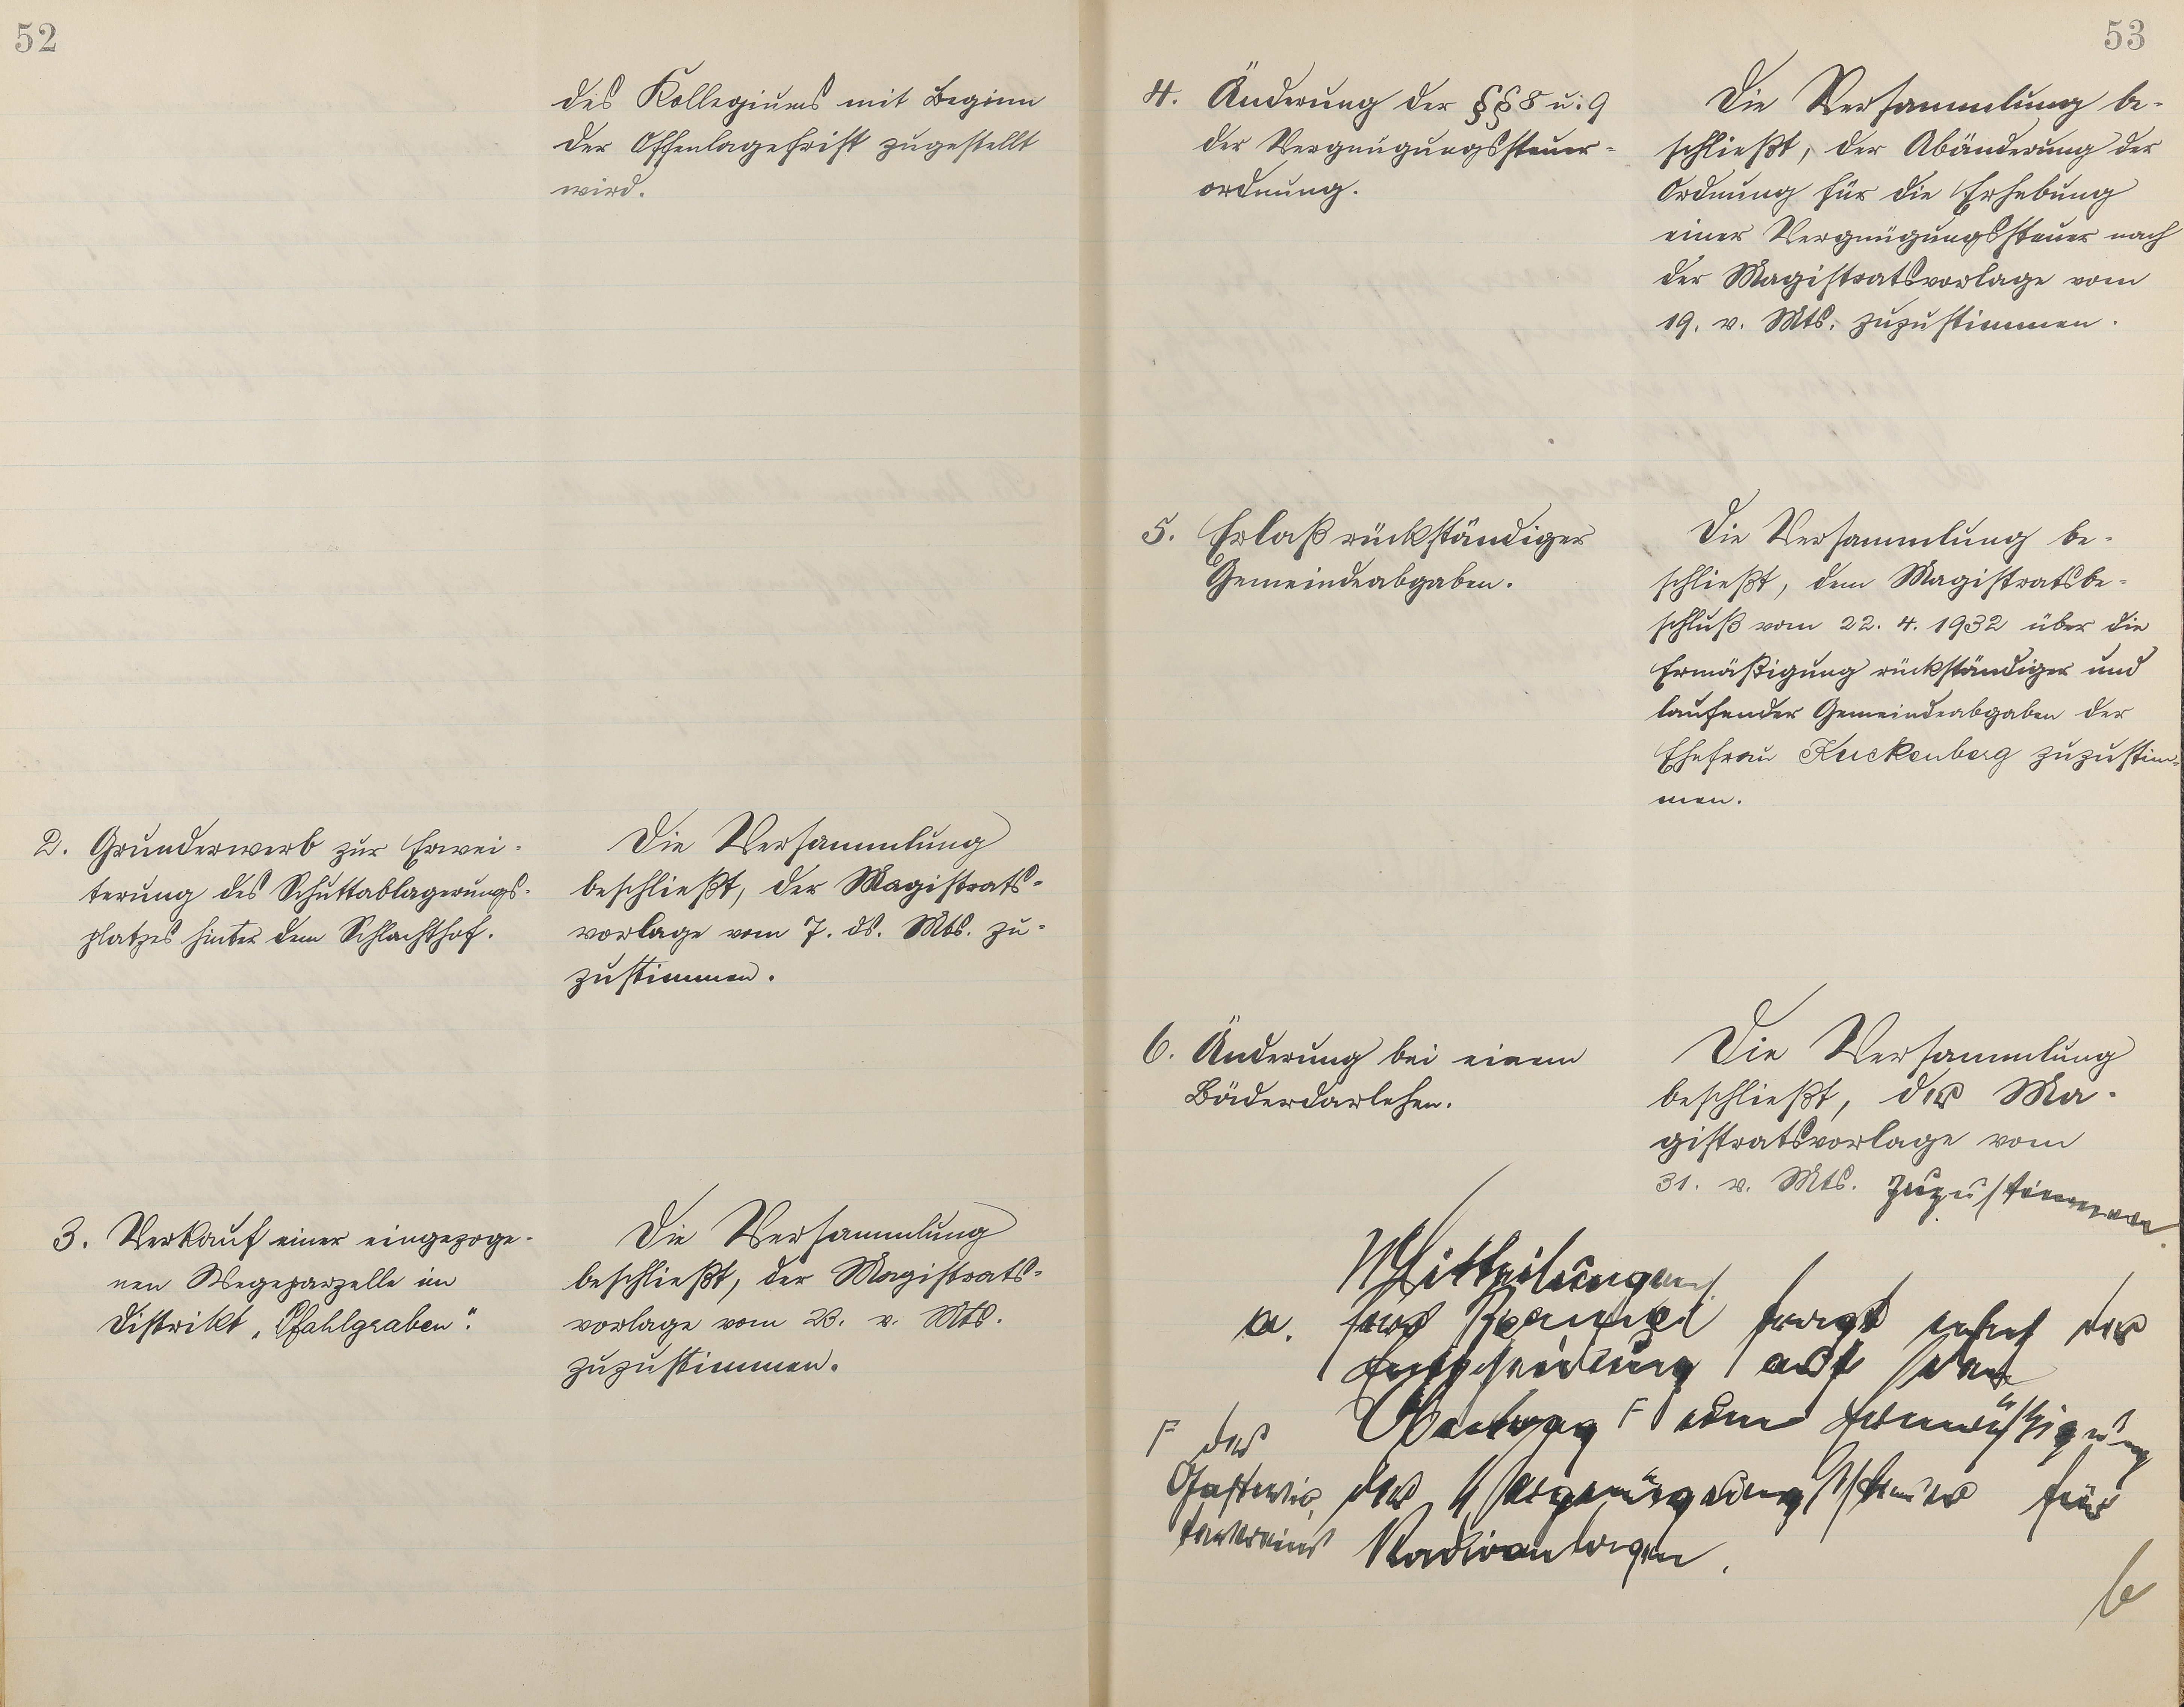 52
des Kollegiums mit Beginn
der Offenlagefrist zugestellt
wird.
2. Grunderwerb zur Erwei-
terung des Schuttablagerungs-
platzes hinter dem Schlachthof.
Die Versammlung
beschließt, der Magistrats-
vorlage vom 7. ds. Mts. zu-
zustimmen.
3. Verkauf einer eingezoge-
nen Wegeparzelle im
Distrikt „Pfahlgraben“.
Die Versammlung
beschließt, der Magistrats-
vorlage vom 23. v. Mts.
zuzustimmen.
53
4. Änderung der §§ 8 u. 9
der Vergnügungssteuer-
ordnung.
Die Versammlung be-
schließt, der Abänderung der
Ordnung für die Erhebung
einer Vergnügungssteuer nach
der Magistratsvorlage vom
19. v. Mts. zuzustimmen.
5. Erlaß rückständiger
Gemeindeabgaben.
Die Versammlung be-
schließt, dem Magistratsbe-
schluß vom 22. 4. 1932 über die
Ermäßigung rückständiger und
laufender Gemeindeabgaben der
Ehefrau Kuckenberg zuzustim-
men.
6. Änderung bei einem
Bäderdarlehen.
Die Versammlung
beschließt, der Ma-
gistratsvorlage vom
31. v. Mts. zuzustimmen.
Mitteilungen.
a. fragt nach der
Entscheidung auf den
Antrag F um Ermäßigung
F des
Gastwir-
tevereins
der Vergnügungssteuer für
Radioanlagen.
b